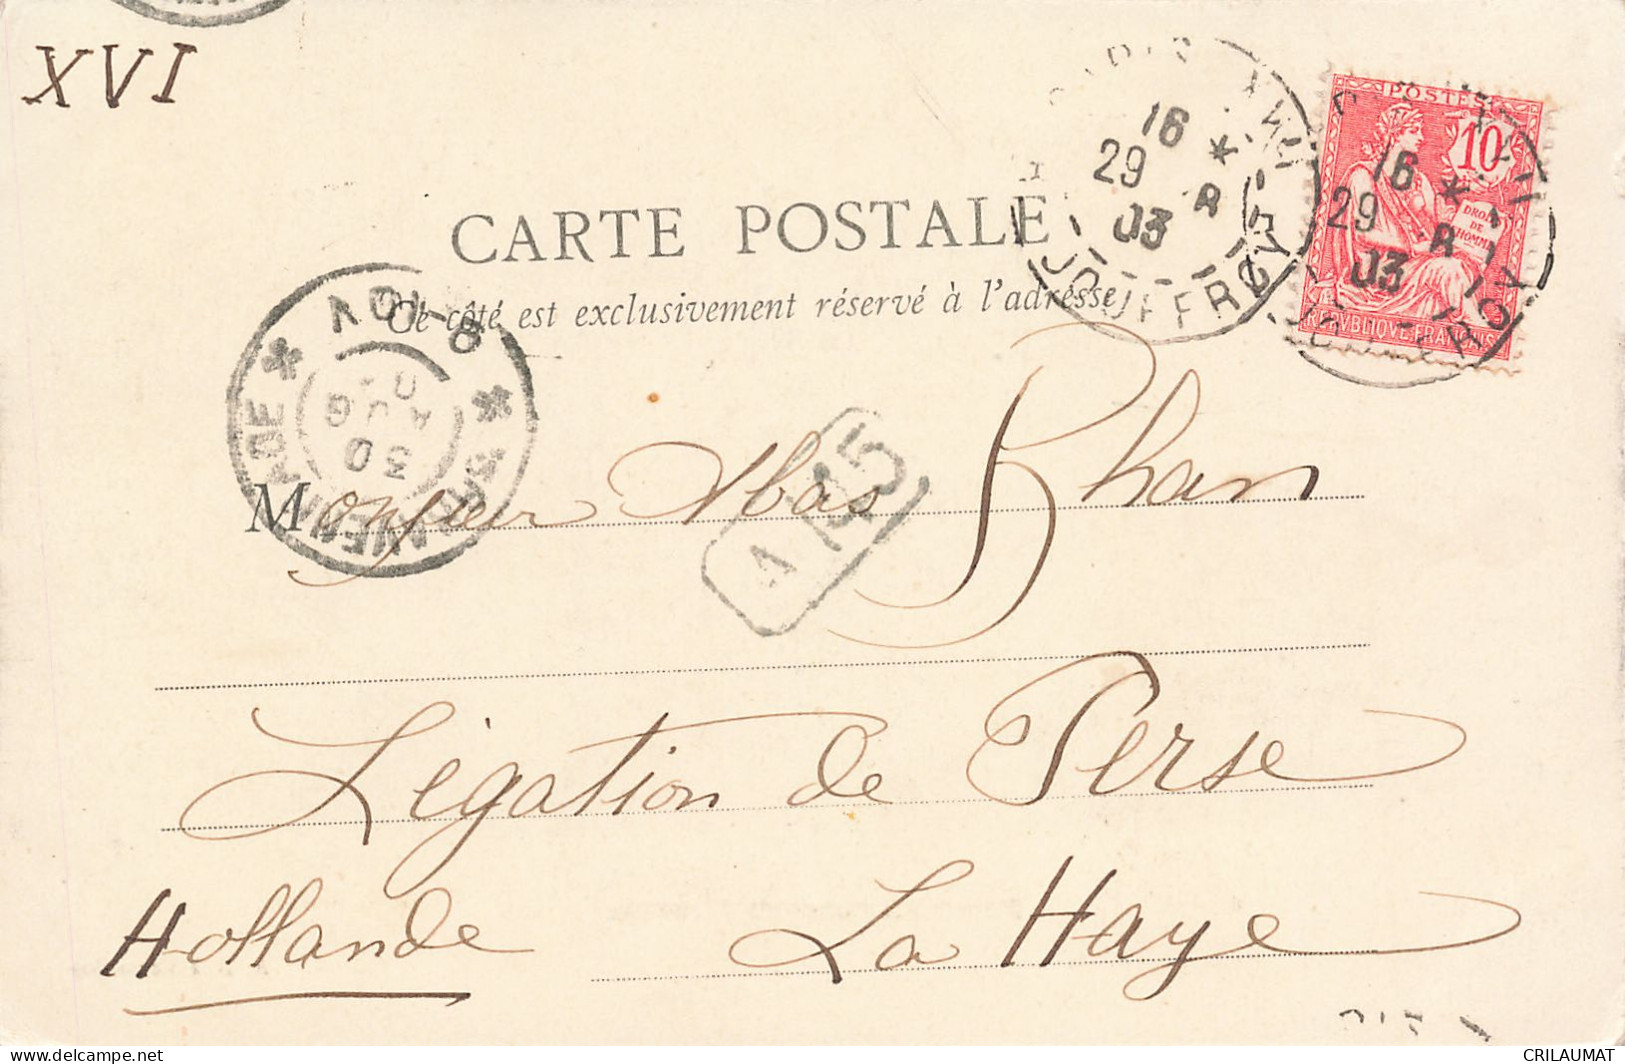 XVI
CARTE POSTALE
Ce côté est exclusivement réservé à l'adresse
16
29 8
03
JOUFFROY
POSTES
10
DROITS
DE
L'HOMME
REPVBLIQVE FRANÇAISE
16
29 8
03
'S GRAVENHAGE
30
AUG
Monsieur Abas Khan
Légation de Perse
Hollande La Haye
CRILAUMAT